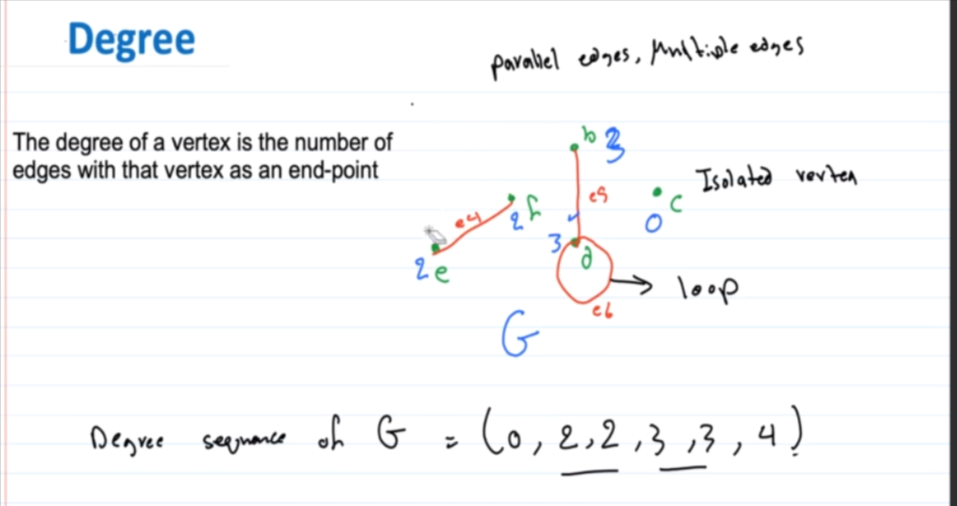 Degree
parallel edges, Multiple edges
The degree of a vertex is the number of
edges with that vertex as an end-point
b 3
Isolated vertex
c
0
e4
f
2
e5
2 e
3
d
loop
e6
G
Degree sequnance of G = (0, 2, 2, 3, 3, 4)